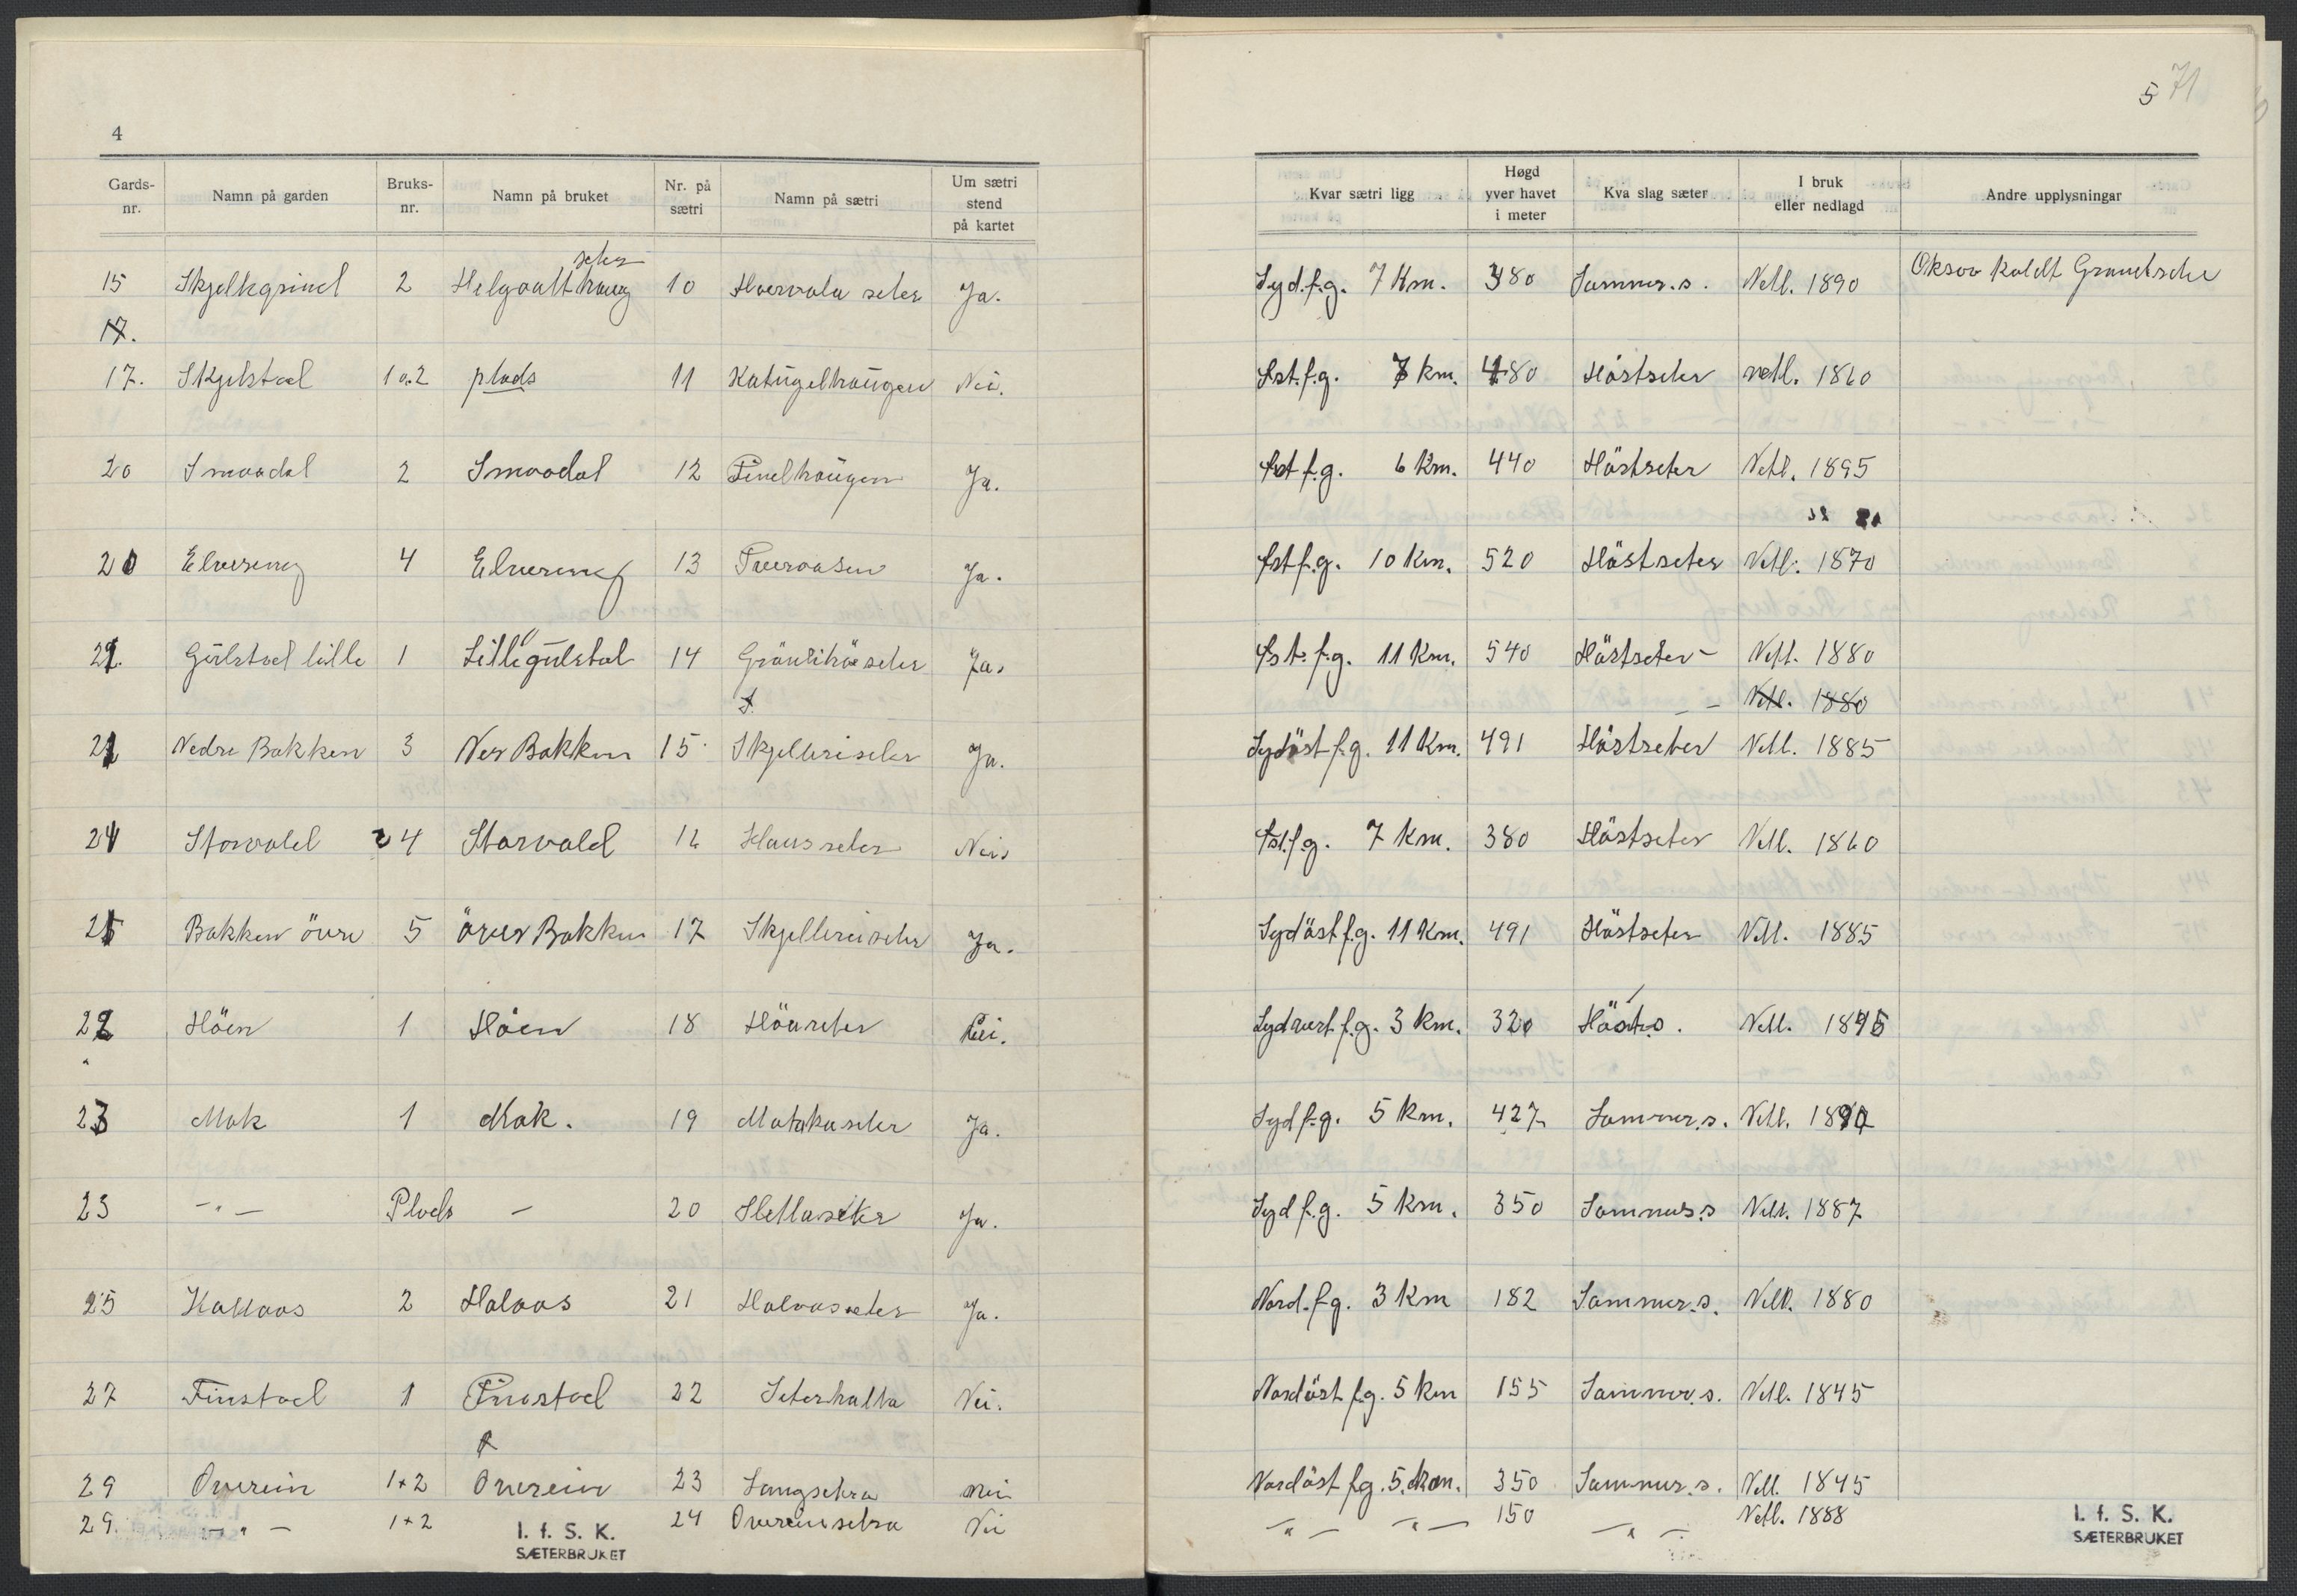 4
Gards-nr. Namn på garden Bruks-nr. Namn på bruket Nr. på sætri Namn på sætri Um sætri stend på kartet
15 Skjelkgrind 2 Helgaatt haug seter 10 Hoervola seter Ja.
17.
17. Skjelstad 1 o. 2 plads 11 Katugelhaugen Nei.
20 Smaadal 2 Smaadal 12 Finelhaugen Ja.
20 Elvereng 4 Elvereng 13 Tveraasen Ja.
21. Gulstad lille 1 Lille gulstad 14 Grönlihöseter Ja.
21 Nedre Bakken 3 Ner Bakken 15 Skjelleriseter Ja.
21 Storvold 4 Storvold 16 Hausseter Nei
21 Bakken övre 5 över Bakken 17 Skjellereiseter Ja.
22 Höen 1 Höen 18 Höaseter Nei.
23 Mok 1 Mok. 19 Mokkaseter Ja.
23 -"- Plads - 20 Hellaseter Ja.
25 Hallaas 2 Halaas 21 Halaasseter Ja.
27 Finstad 1 Finstad 22 Seterhalla Nei.
29 Överein 1+2 Överein 23 Langsetra Nei
29. -"- 1+2 24 Övereinsetra Nei
I. f. S. K.
SÆTERBRUKET
5 71
Kvar sætri ligg Høgd yver havet i meter Kva slag sæter I bruk eller nedlagd Andre upplysningar
Syd.f.g. 7 Km. 380 Sommer.s. Nedl. 1890 Oksaa kaldt Grandseter
Öst.f.g. 7 km. 480 Höstseter nedl. 1860
Öst f.g. 6 Km. 440 Höstseter Nedl. 1895
Öst f.g. 10 Km. 520 Höstseter Nedl. 1870
Öst. f.g. 11 Km. 540 Höstseter Nedl. 1880
Nedl. 1880
Sydöst f.g. 11 Km. 491 Höstseter Nedl. 1885
Öst.f.g. 7 Km. 380 Höstseter Nedl. 1860
Sydöst f.g. 11 Km. 491 Höstseter Nedl. 1885
Sydvest f.g. 3 Km. 320 Höst.s. Nedl. 1895
Syd f.g. 5 Km. 427 Sommer.s. Nedl. 1890
Syd f.g. 5 Km. 350 Sommer.s Nedl. 1887
Nord. f.g. 3 Km 182 Sommer.s. Nedl. 1880
Nordöst f.g. 5 Km 155 Sommer.s. Nedl. 1845
Nordöst f.g. 5. Km. 350 Sommer.s. Nedl. 1845
-"- -"- 150 -"- Nedl. 1888
I. f. S. K.
SÆTERBRUKET